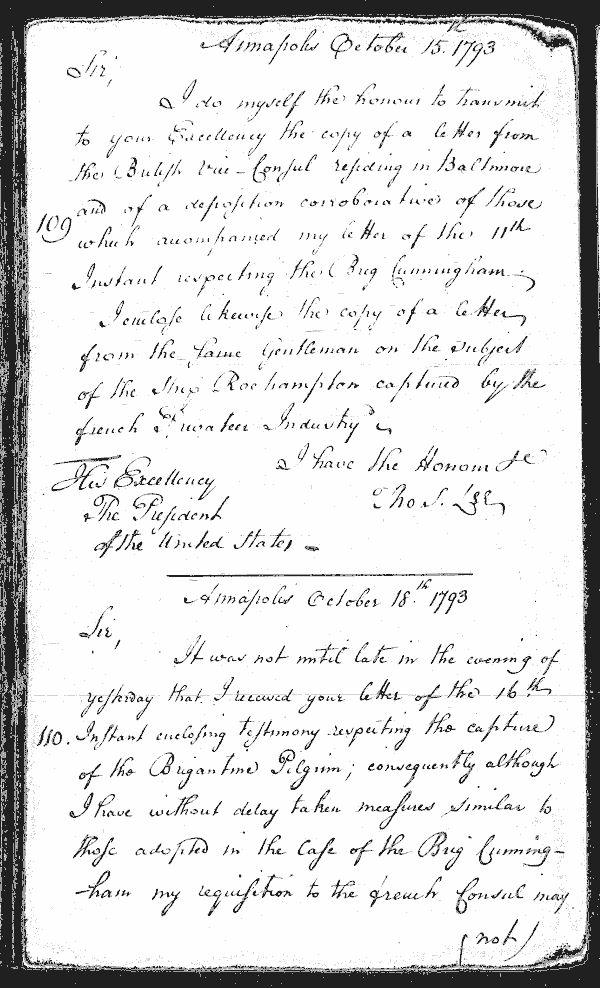 Annapolis October 15.th 1793
Sir,
I do myself the honour to transmit
to your Excellency the copy of a letter from
the British Vice-Consul residing in Baltimore
and of a deposition corroborative of those
109
which accompanied my letter of the 11th
Instant respecting the Brig Cunningham.
I enclose likewise the copy of a letter
from the same Gentleman on the subject
of the Ship Roehampton captured by the
french Privateer Industry
I have the Honour &c
His Excellency
Tho S. Lee
The President
of the United States
Annapolis October 18.th 1793
Sir,
It was not until late in the evening of
yesterday that I received your letter of the 16th
110. Instant enclosing testimony respecting the capture
of the Brigantine Pilgrim; consequently although
I have without delay taken measures similar to
those adopted in the Case of the Brig Cunning-
-ham my requisition to the french Consul may
(not)